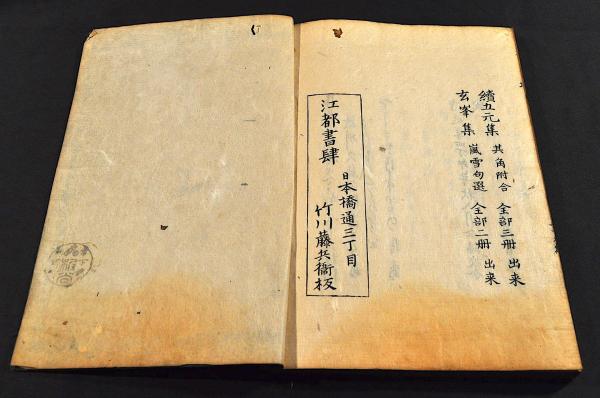 續五元集 其角附合 全部三冊 出来
玄峯集 嵐雪句選 全部二册 出来
江都書肆
日本橋通三丁目
竹川藤兵衞板